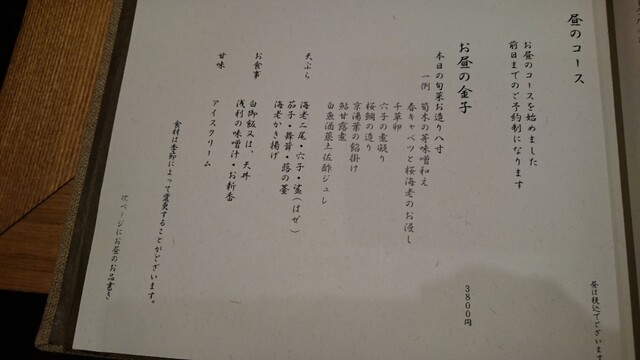 昼のコース
お昼のコースを始めました
前日までのご予約制になります
昼は税込でございます
お昼の金子
3800円
本日の旬菜お造り八寸
一例 筍木の芽味噌和え
春キャベツと桜海老のお浸し
千草卵
六子の煮凝り
桜鯛の造り
京湯葉の餡掛け
鮎甘露煮
白魚酒蒸土佐酢ジュレ
天ぷら 海老二尾・穴子・(はぜ)
茄子・舞茸・蕗の薹
海老かき揚げ
お食事 白御飯又は、天丼
浅利の味噌汁・お新香
甘味 アイスクリーム
食材は季節によって変更することがございます。
次ページにお昼のお品書き